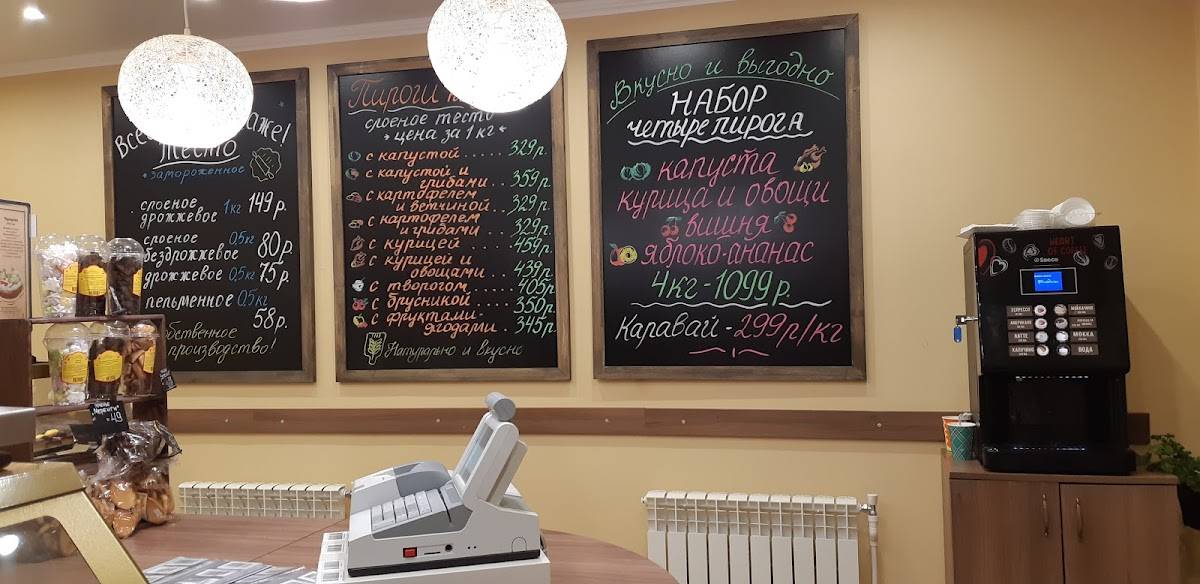 Всег
аже!
тесто
замороженное
слоеное
дрожжевое 1кг 149р.
слоеное 0,5кг
бездрожжевое 80р.
дрожжевое 0,5кг 75р.
пельменное 0,5кг
58р.
производство!
Пироги
слоеное тесто
цена за 1 кг
с капустой..... 329р.
с капустой и
грибами.. 359р
с картофелем
и ветчиной.. 329р.
с картофелем
и грибами.... 329р.
с курицей..... 459р.
с курицей и
овощами.... 439р
с творогом.... 405р
с брусникой.... 350р.
с фруктами-
ягодами.... 345р.
Натурально и вкусно
Вкусно и выгодно
НАБОР
четыре пирога
капуста
курица и овощи
вишня
яблоко-ананас
4кг-1099р.
Каравай-299р/кг
Saeco
ЭСПРЕССО
АМЕРИКАНО
ЛАТТЕ
МОККА
КАПУЧИНО
ВОДА
49